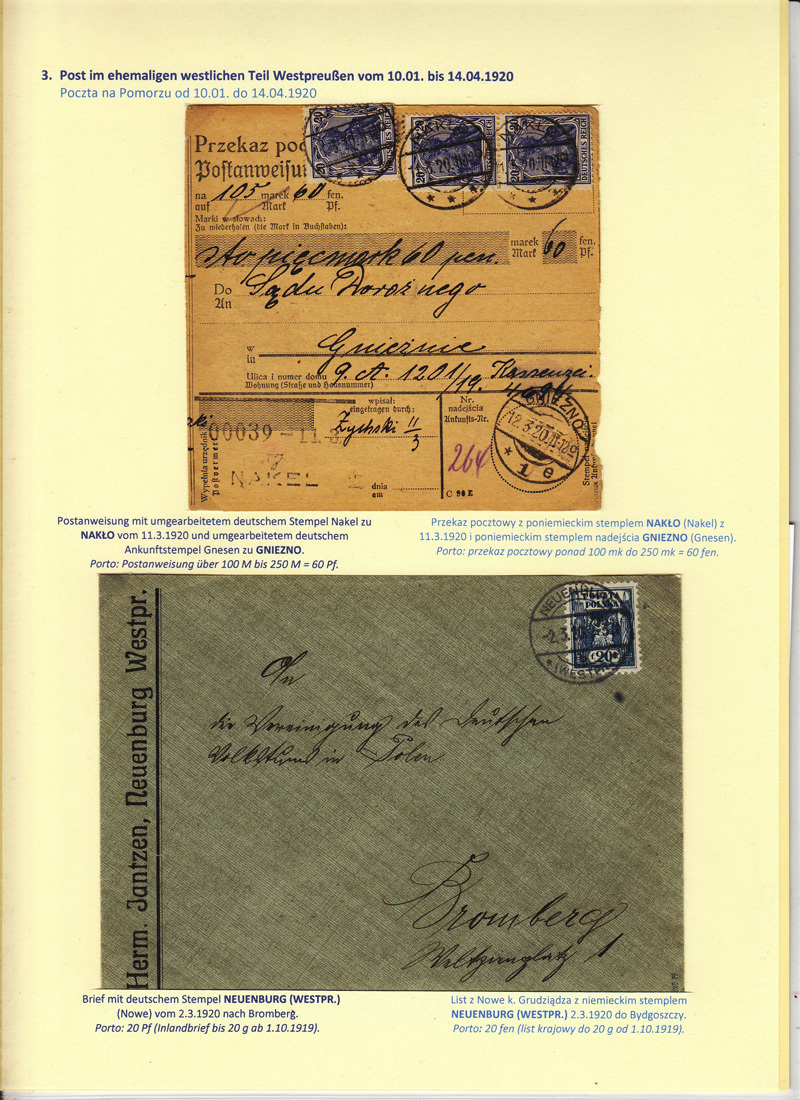 3. Post im ehemaligen westlichen Teil Westpreußen vom 10.01. bis 14.04.1920
Poczta na Pomorzu od 10.01. do 14.04.1920
Przekaz poc
Postanweisun
20 20 20
DEUTSCHES REICH
NAKŁO
na 105 marek 60 fen.
auf Mark Pf.
Marki w słowach:
Zu wiederholen (die Mark in Buchstaben):
sto pięcmark 60 pen. marek 60 fen.
Mark Pf.
Do Sądu Dorożnego
An
w Gnieźnie
in
Ulica i numer domu 9. A. 1201/19, Kassenzei.
Wohnung (Straße und Hausnummer)
wpisał:
eingetragen durch:
Nr.
nadejścia
Ankunfts-Nr.
GNIEZNO
12.3.20.11-12V
* 1 e
00039 -11.3.
7
NAKEL
11/3
264
dnia
am
C 90 E
Wypełnia urzędnik
Postvermerk
Postanweisung mit umgearbeitetem deutschem Stempel Nakel zu
NAKŁO vom 11.3.1920 und umgearbeitetem deutschem
Ankunftstempel Gnesen zu GNIEZNO.
Porto: Postanweisung über 100 M bis 250 M = 60 Pf.
Przekaz pocztowy z poniemieckim stemplem NAKŁO (Nakel) z
11.3.1920 i poniemieckim stemplem nadejścia GNIEZNO (Gnesen).
Porto: przekaz pocztowy ponad 100 mk do 250 mk = 60 fen.
Herm. Jantzen, Neuenburg Westpr.
NEUENBURG
-2.3.20
* (WESTPR.)
POCZTA
POLSKA
20
An
die Vereinigung des Deutschen
Volkstums in Polen
Bromberg
Weltzienplatz 1
Brief mit deutschem Stempel NEUENBURG (WESTPR.)
(Nowe) vom 2.3.1920 nach Bromberg.
Porto: 20 Pf (Inlandbrief bis 20 g ab 1.10.1919).
List z Nowe k. Grudziądza z niemieckim stemplem
NEUENBURG (WESTPR.) 2.3.1920 do Bydgoszczy.
Porto: 20 fen (list krajowy do 20 g od 1.10.1919).